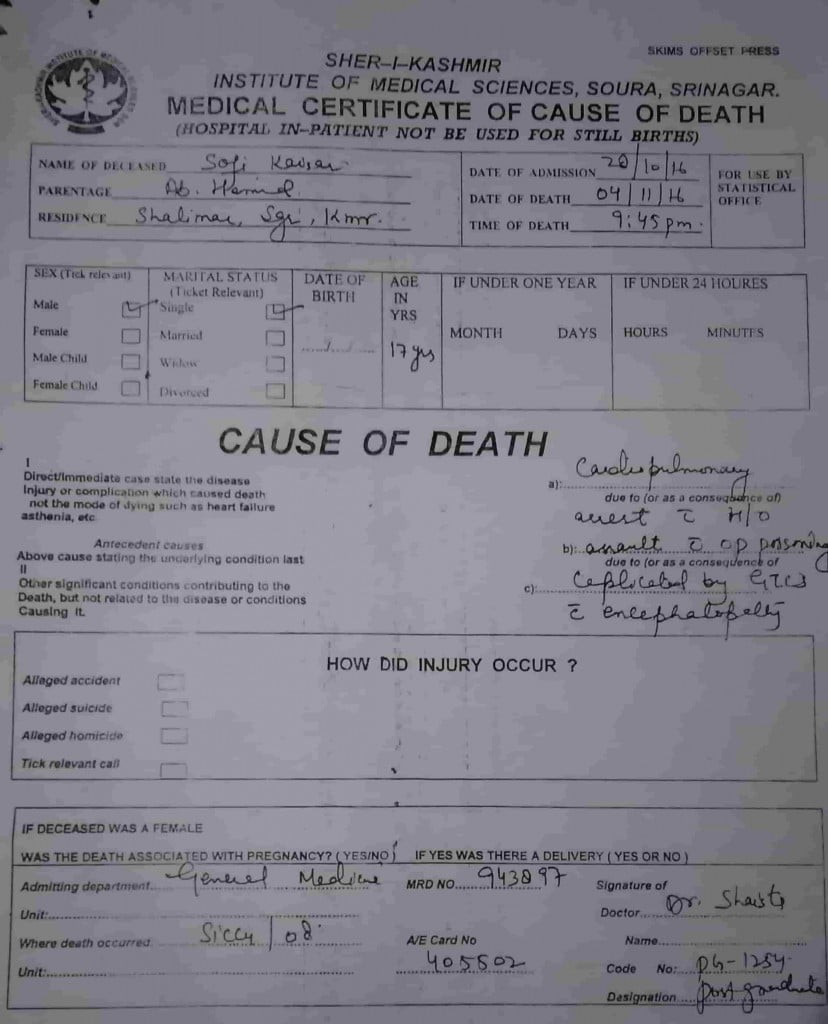 SKIMS OFFSET PRESS
SHER-I-KASHMIR
INSTITUTE OF MEDICAL SCIENCES, SOURA, SRINAGAR.
MEDICAL CERTIFICATE OF CAUSE OF DEATH
(HOSPITAL IN-PATIENT NOT BE USED FOR STILL BIRTHS)
NAME OF DECEASED Sofi Kaisar
PARENTAGE Ab. Hamid
RESIDENCE Shalimar, Sgr, Kmr.
DATE OF ADMISSION 20/10/16
DATE OF DEATH 04/11/16
TIME OF DEATH 9:45 pm.
FOR USE BY
STATISTICAL
OFFICE
SEX (Tick relevant)
Male
Female
Male Child
Female Child
MARITAL STATUS
(Ticket Relevant)
Single
Married
Widow
Divorced
DATE OF
BIRTH
AGE
IN
YRS
17 yrs
IF UNDER ONE YEAR
MONTH DAYS
IF UNDER 24 HOURES
HOURS MINUTES
CAUSE OF DEATH
I
Direct/Immediate case state the disease
Injury or complication which caused death
not the mode of dying such as heart failure
asthenia, etc.
Antecedent causes
Above cause stating the underlying condition last
II
Other significant conditions contributing to the
Death, but not related to the disease or conditions
Causing it.
a): Cardiopulmonary
due to (or as a consequence of)
arrest c̄ H/O
b): assault c̄ op poisoning
due to (or as a consequence of
c): Coplicated by GTCS
c̄ encephalopathy
HOW DID INJURY OCCUR ?
Alleged accident
Alleged suicide
Alleged homicide
Tick relevant call
IF DECEASED WAS A FEMALE
WAS THE DEATH ASSOCIATED WITH PREGNANCY? (YES/NO) IF YES WAS THERE A DELIVERY (YES OR NO)
Admitting department General Medicine
Unit:
Where death occurred SICCU/08
Unit:
MRD NO. 943897
A/E Card No
405502
Signature of
Doctor Dr. Shaista
Name
Code No: PG-1254
Designation post graduate